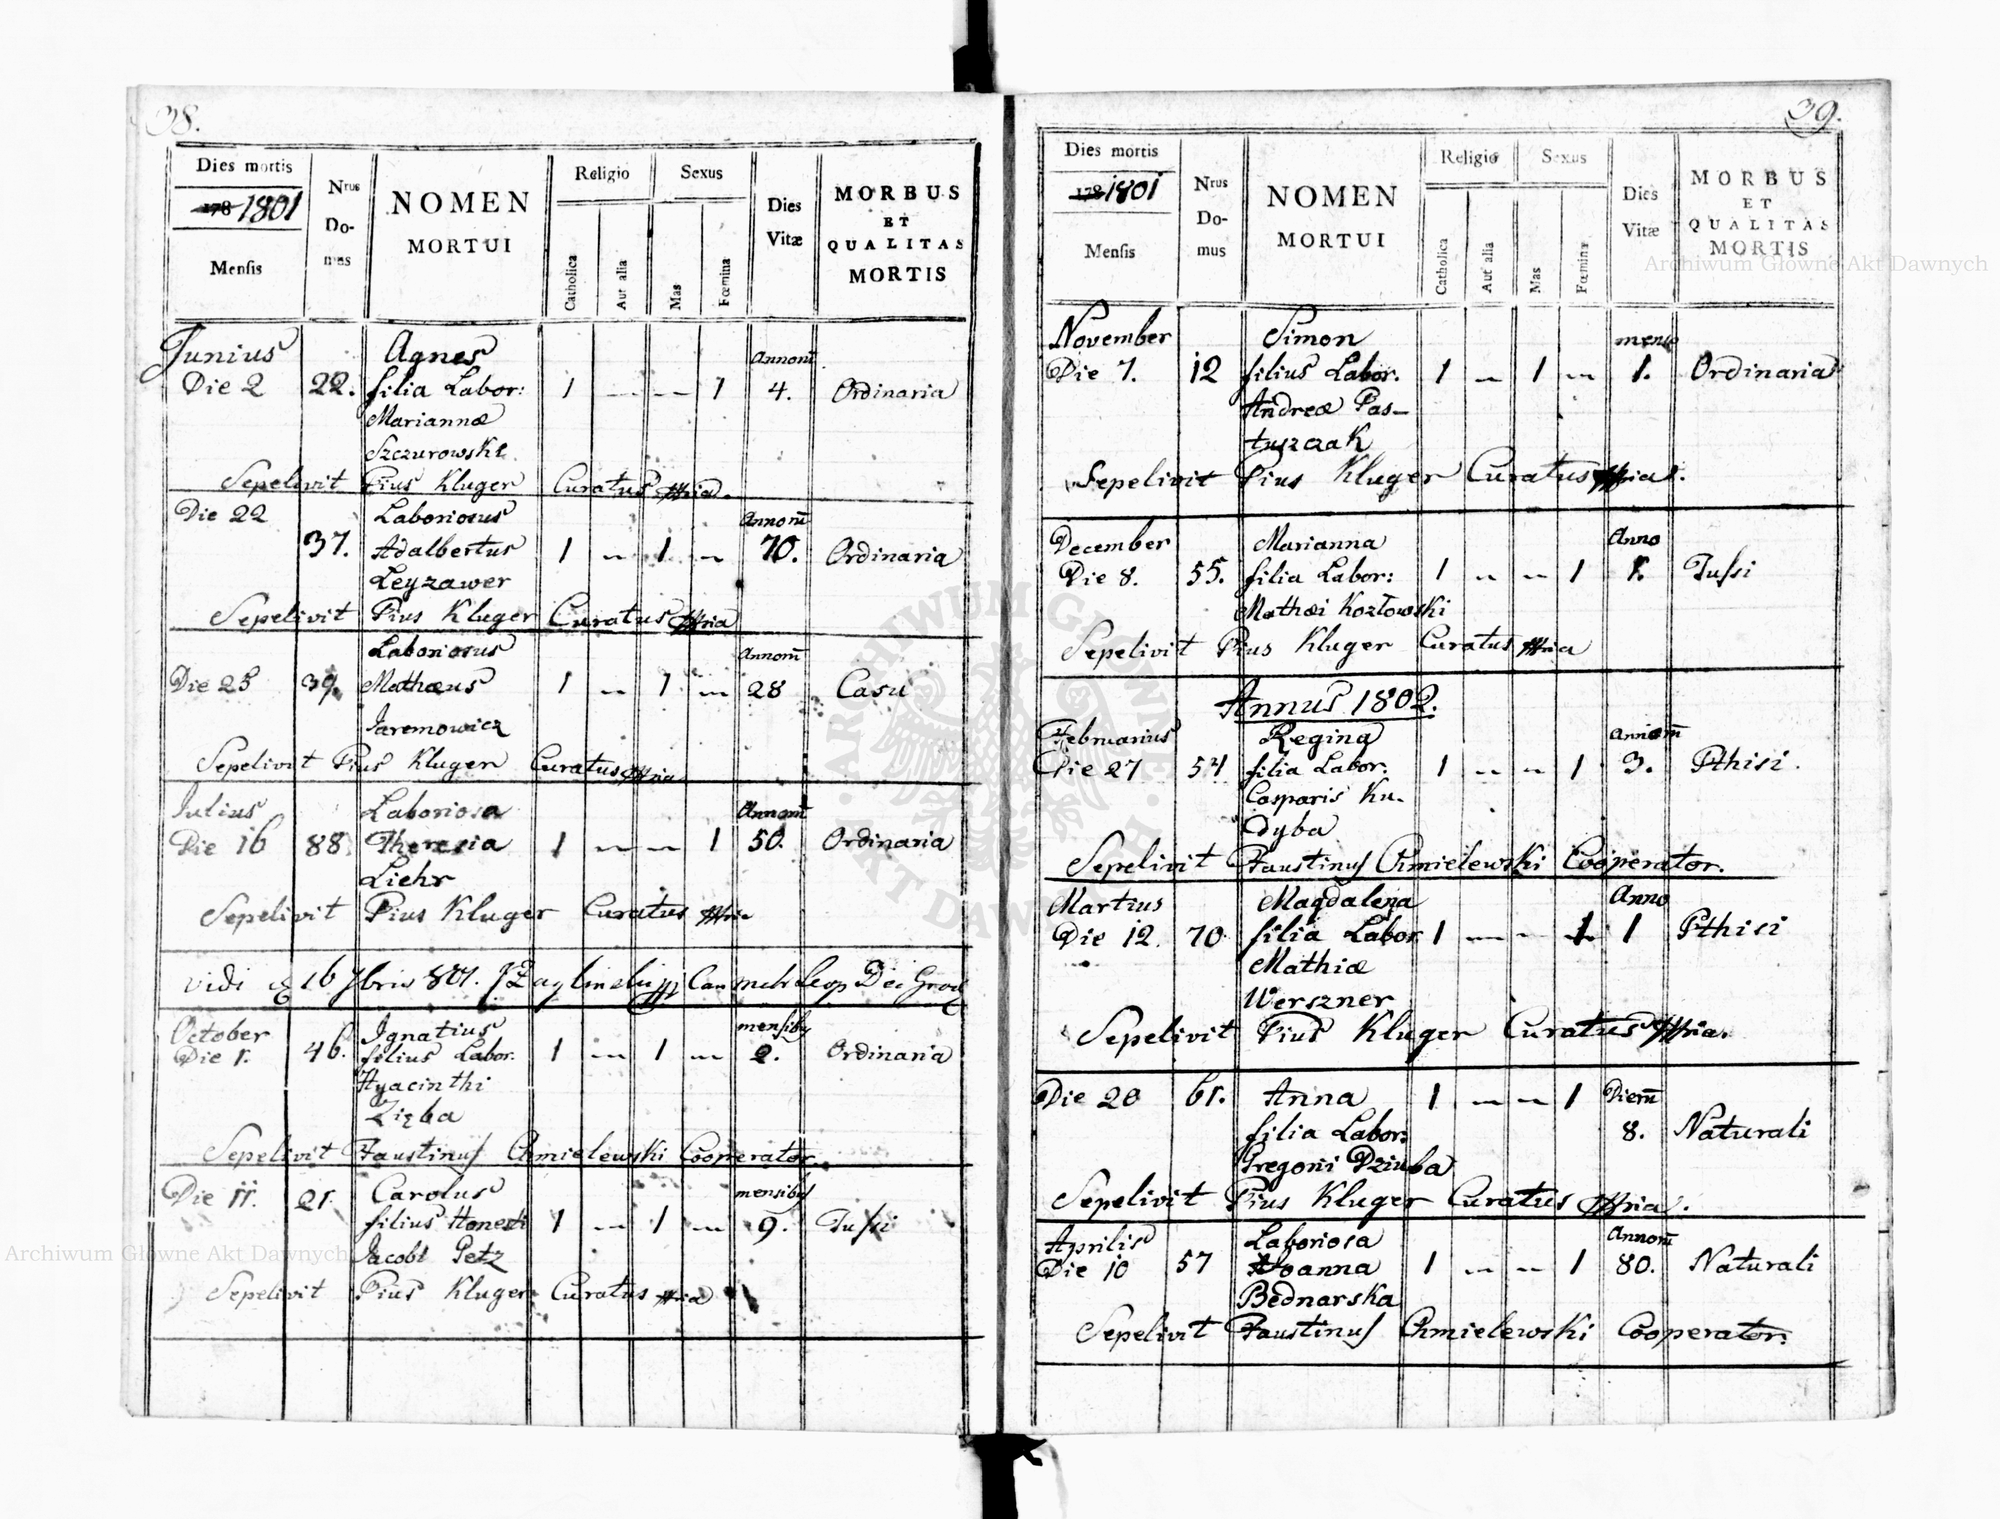 38.
Dies mortis
178 1801
Mensis
Nrus Do- mus
NOMEN
MORTUI
Religio
Catholica
Aut alia
Sexus
Mas
Fœmina
Dies
Vitæ
MORBUS
ET
QUALITAS
MORTIS
Junius Agnes Annorū
Die 2 22. filia Labor: 1 — — 1 4. Ordinaria
Mariannæ
Szczurowski
Sepelivit Pius Kluger Curatus
Die 22 Laboriosus Annorū
37. Adalbertus 1 — 1 — 70. Ordinaria
Leyzawer
Sepelivit Pius Kluger Curatus
Laboriosus Annorū
Die 25 39. Mathæus 1 — 1 — 28 Casu
Jaremowicz
Sepelivit Pius Kluger Curatus
Julius Laboriosa Annorū
Die 16 88. Theresia 1 — — 1 50. Ordinaria
Liehr
Sepelivit Pius Kluger Curatus
vidi 16 7bris 801.
October Ignatius mensibus
Die 1. 46. filius Labor. 1 — 1 — 2. Ordinaria
Hyacinthi
Zięba
Sepelivit Faustinus Chmielewski Cooperator.
Die 11. 21. Carolus mensibus
filius Honesti 1 — 1 — 9. Tussi
Jacobi Petz
Sepelivit Pius Kluger Curatus
39.
Dies mortis
178 1801
Mensis
Nrus Do- mus
NOMEN
MORTUI
Religio
Catholica
Aut alia
Sexus
Mas
Fœmina
Dies
Vitæ
MORBUS
ET
QUALITAS
MORTIS
November Simon mense
Die 7. 12 filius Labor. 1 — 1 — 1. Ordinaria
Andreæ Pas-
tuszczak
Sepelivit Pius Kluger Curatus
December Marianna Anno
Die 8. 55. filia Labor: 1 — — 1 1. Tussi
Mathæi Kozłowski
Sepelivit Pius Kluger Curatus
Annus 1802.
Februarius Regina Annorū
Die 27 54 filia Labor. 1 — — 1 3. Pthisi.
Casparis Ku-
dyba
Sepelivit Faustinus Chmielewski Cooperator.
Martius Magdalena Anno
Die 12. 70 filia Labor 1 — — 1 1 Pthisi
Mathiæ
Werszner
Sepelivit Pius Kluger Curatus
Die 20 61. Anna 1 — — 1 Dierū
filia Labor: 8. Naturali
Gregorii Dziuba
Sepelivit Pius Kluger Curatus
Aprilis Laboriosa Annorū
Die 10 57 Joanna 1 — — 1 80. Naturali
Bednarska
Sepelivit Faustinus Chmielewski Cooperator.
Archiwum Główne Akt Dawnych
Archiwum Główne Akt Dawnych
ARCHIWUM GŁÓWNE AKT DAWNYCH